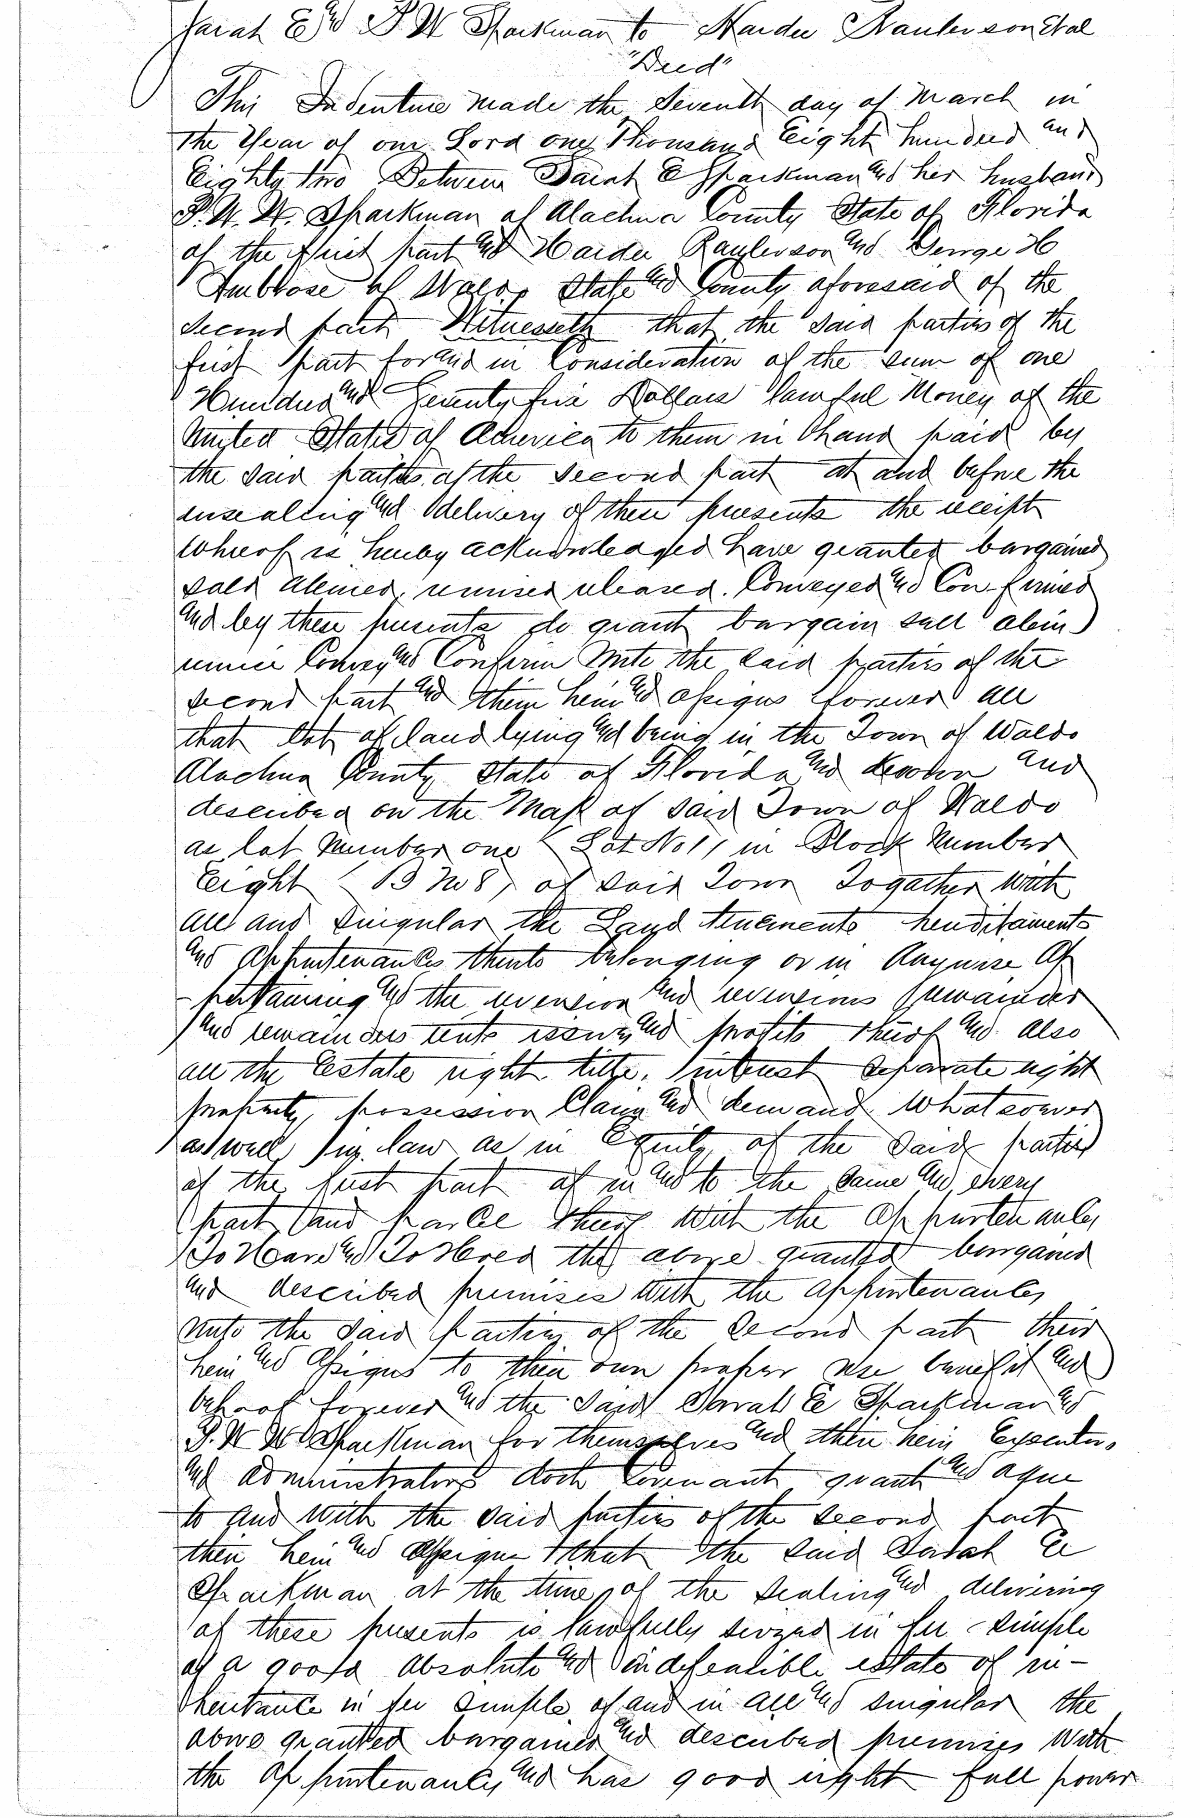 Sarah E and P. W Sparkman to Hardee Raulerson Et al
"Deed"
This Indenture made the Seventh day of March in
the Year of our Lord one Thousand Eight hundred and
Eighty two Between Sarah E Sparkman and her husband
P. W. W. Sparkman of Alachua County State of Florida
of the first part and Hardee Raulerson and George H
Ambrose of Waldo, State and County aforesaid of the
second part Witnesseth that the said parties of the
first part for and in Consideration of the sum of one
Hundred and Seventy five Dollars lawful Money of the
United States of America to them in hand paid by
the said parties of the second part at and before the
ensealing and delivery of these presents the receipt
whereof is hereby acknowledged have granted bargained
sold aliened, remised released. Conveyed and Con-firmed
and by these presents do grant bargain sell alien
remise Convey and Confirm Unto the said parties of the
second part and their heirs and assigns forever all
that Lot of land lying and being in the Town of Waldo
Alachua County State of Florida and known and
described on the Map of said Town of Waldo
as lot Number one (Lot No 1) in Block Number
Eight (B No 8) of said Town Together with
all and singular the Land tenements hereditaments
and appurtenances thereto belonging or in Anywise Ap
-pertaining and the reversion and reversions remainder
and remainders rents issues and profits thereof and also
all the Estate right title, interest separate right
property, possession Claim and demand whatsoever
as well in law as in Equity of the said parties
of the first part of in and to the same and every
part and parcel thereof with the appurtenances
To Have and To Hold the above granted bargained
and described premises with the appurtenances
unto the said parties of the second part their
heirs and assigns to their own proper use benefit and
behoof forever and the said Sarah E Sparkman and
P. W W Sparkman for themselves and their heirs Executors
and administrators doth Covenant grant and agree
to and with the said parties of the second part
their heirs and assigns that the said Sarah E
Sparkman at the time of the sealing and delivering
of these presents is lawfully seized in fee-simple
of a good absolute and indefeasible estate of in-
heritance in fee simple of and in all and singular the
above granted bargained and described premises with
the appurtenances and has good right full power